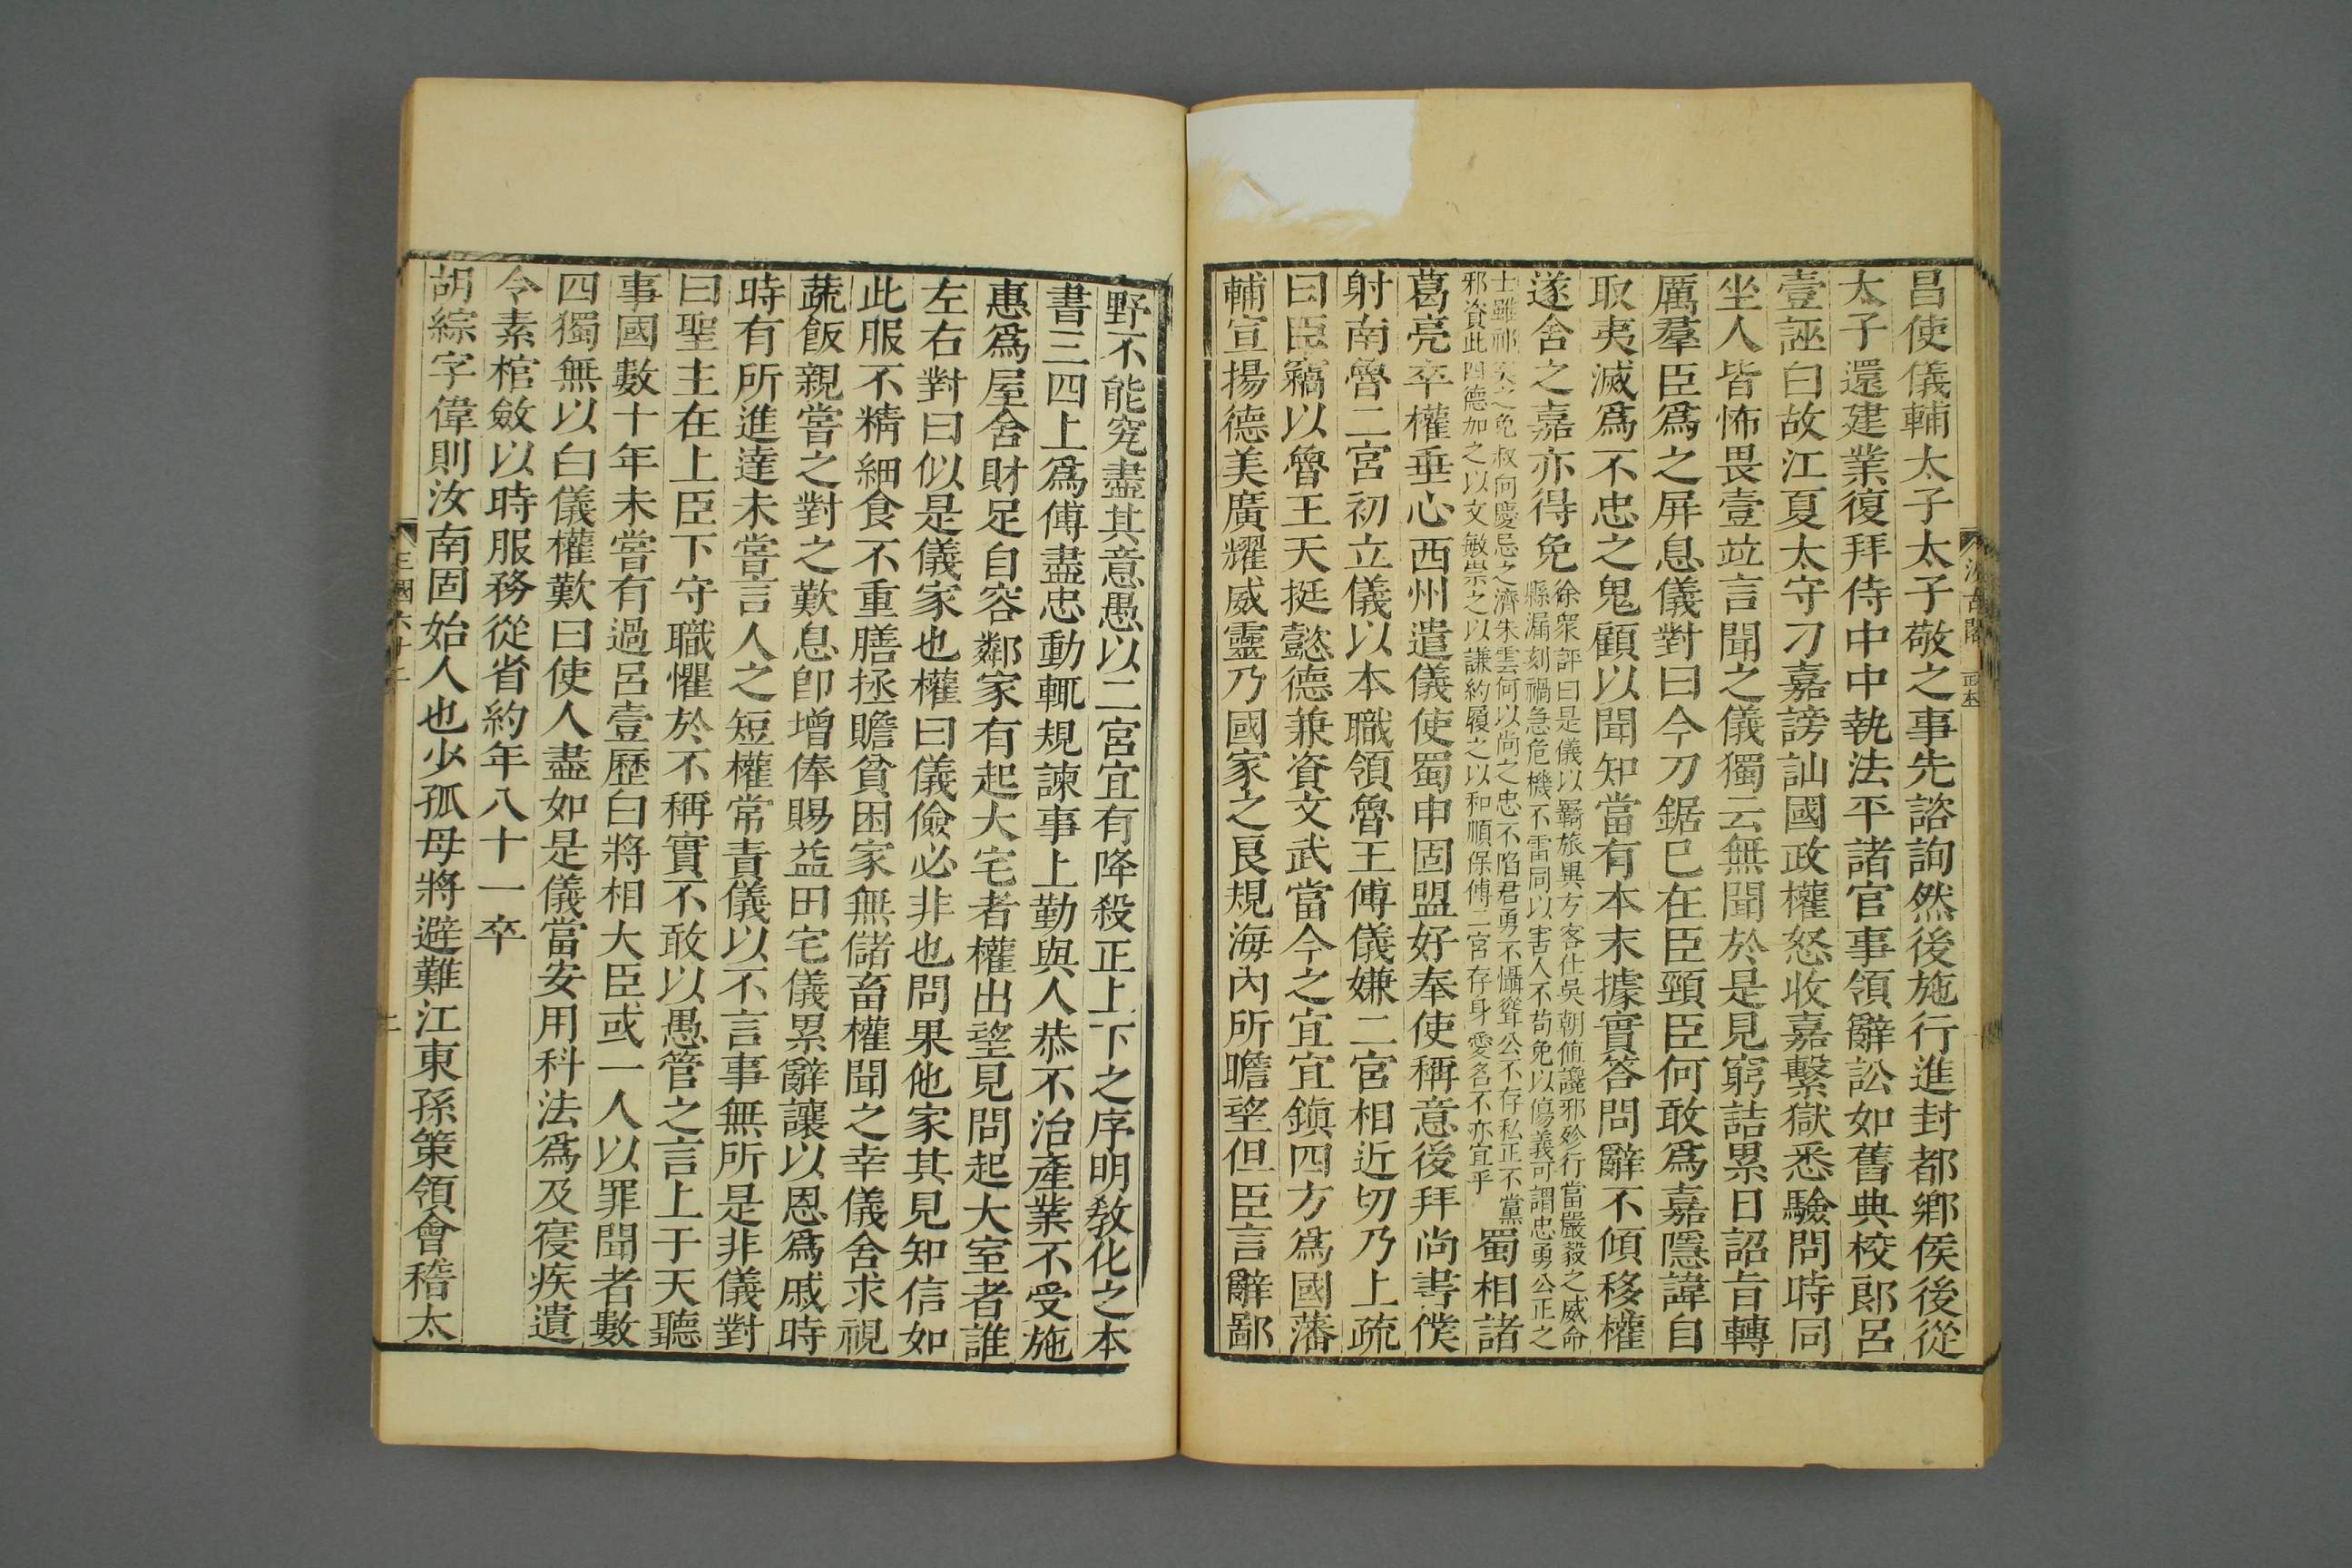 昌使儀輔太子太子敬之事先諮詢然後施行進封都鄉侯後從
太子還建業復拜侍中中執法平諸官事領辭訟如舊典校郎呂
壹誣白故江夏太守刁嘉謗訕國政權怒收嘉繫獄悉驗問時同
坐人皆怖畏壹竝言聞之儀獨云無聞於是見窮詰累日詔旨轉
厲羣臣爲之屏息儀對曰今刀鋸已在臣頸臣何敢爲嘉隱諱自
取夷滅爲不忠之鬼顧以聞知當有本末據實答問辭不傾移權
遂舍之嘉亦得免
徐衆評曰是儀以羈旅異方客仕吳朝值讒邪殄行當嚴毅之威命
縣漏刻禍急危機不雷同以害人不苟免以傷義可謂忠勇公正之
士雖祁奚之免叔向慶忌之濟朱雲何以尚之忠不諂君勇不懾聳公不存私正不黨
邪資此四德加之以文敏崇之以謙約履之以和順保傅二宮存身愛名不亦宜乎
蜀相諸
葛亮卒權垂心西州遣儀使蜀申固盟好奉使稱意後拜尚書僕
射南魯二宮初立儀以本職領魯王傅儀嫌二宮相近切乃上疏
曰臣竊以魯王天挺懿德兼資文武當今之宜宜鎭四方爲國藩
輔宣揚德美廣耀威靈乃國家之良規海內所瞻望但臣言辭鄙
汲古閣
正本
野不能究盡其意愚以二宮宜有降殺正上下之序明敎化之本
書三四上爲傅盡忠動輒規諫事上勤與人恭不治產業不受施
惠爲屋舍財足自容鄰家有起大宅者權出望見問起大室者誰
左右對曰似是儀家也權曰儀儉必非也問果他家其見知信如
此服不精細食不重膳拯贍貧困家無儲畜權聞之幸儀舍求視
蔬飯親嘗之對之歎息卽增俸賜益田宅儀累辭讓以恩爲戚時
時有所進達未嘗言人之短權常責儀以不言事無所是非儀對
曰聖主在上臣下守職懼於不稱實不敢以愚管之言上于天聽
事國數十年未嘗有過呂壹歷白將相大臣或一人以罪聞者數
四獨無以白儀權歎曰使人盡如是儀當安用科法爲及寑疾遺
令素棺斂以時服務從省約年八十一卒
胡綜字偉則汝南固始人也少孤母將避難江東孫策領會稽太
三國六十二
二